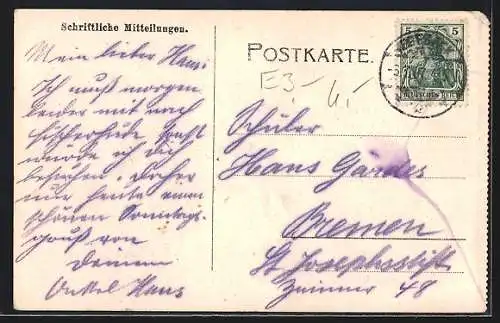 Schriftliche Mitteilungen.
Mein lieber Hans!
Ich muß morgen
leider mit nach
sonst
würde ich Dich
besuchen. Daher
nur heute einen
schönen Sonntags-
gruß von
Deinem
Onkel Hans
POSTKARTE.
5 5
Deutsches Reich
E3-
4.-
Schüler
Hans Gardes
Bremen
St Josephsstift
Zimmer 48